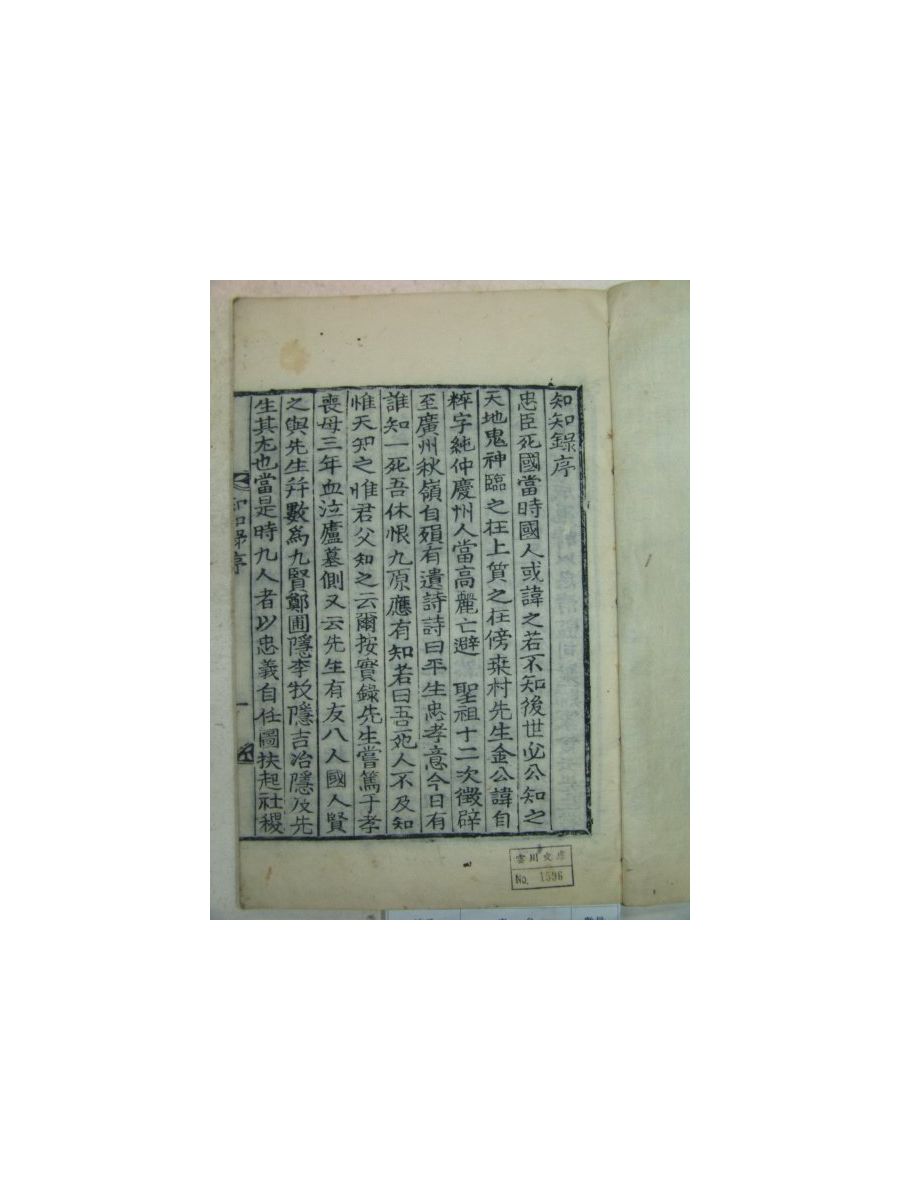 知知錄序
忠臣死國當時國人或諱之若不知後世必公知之
天地鬼神臨之在上質之在傍桒村先生金公諱自
粹字純仲慶州人當高麗亡避 聖祖十二次徵辟
至廣州秋嶺自殞有遺詩詩曰平生忠孝意今日有
誰知一死吾休恨九原應有知若曰吾死人不及知
惟天知之惟君父知之云爾按實錄先生嘗篤于孝
喪母三年血泣廬墓側又云先生有友八人國人賢
之與先生幷數爲九賢鄭圃隱李牧隱吉冶隱及先
生其尤也當是時九人者以忠義自任圖扶起社稷
知知錄序
一
No. 1596